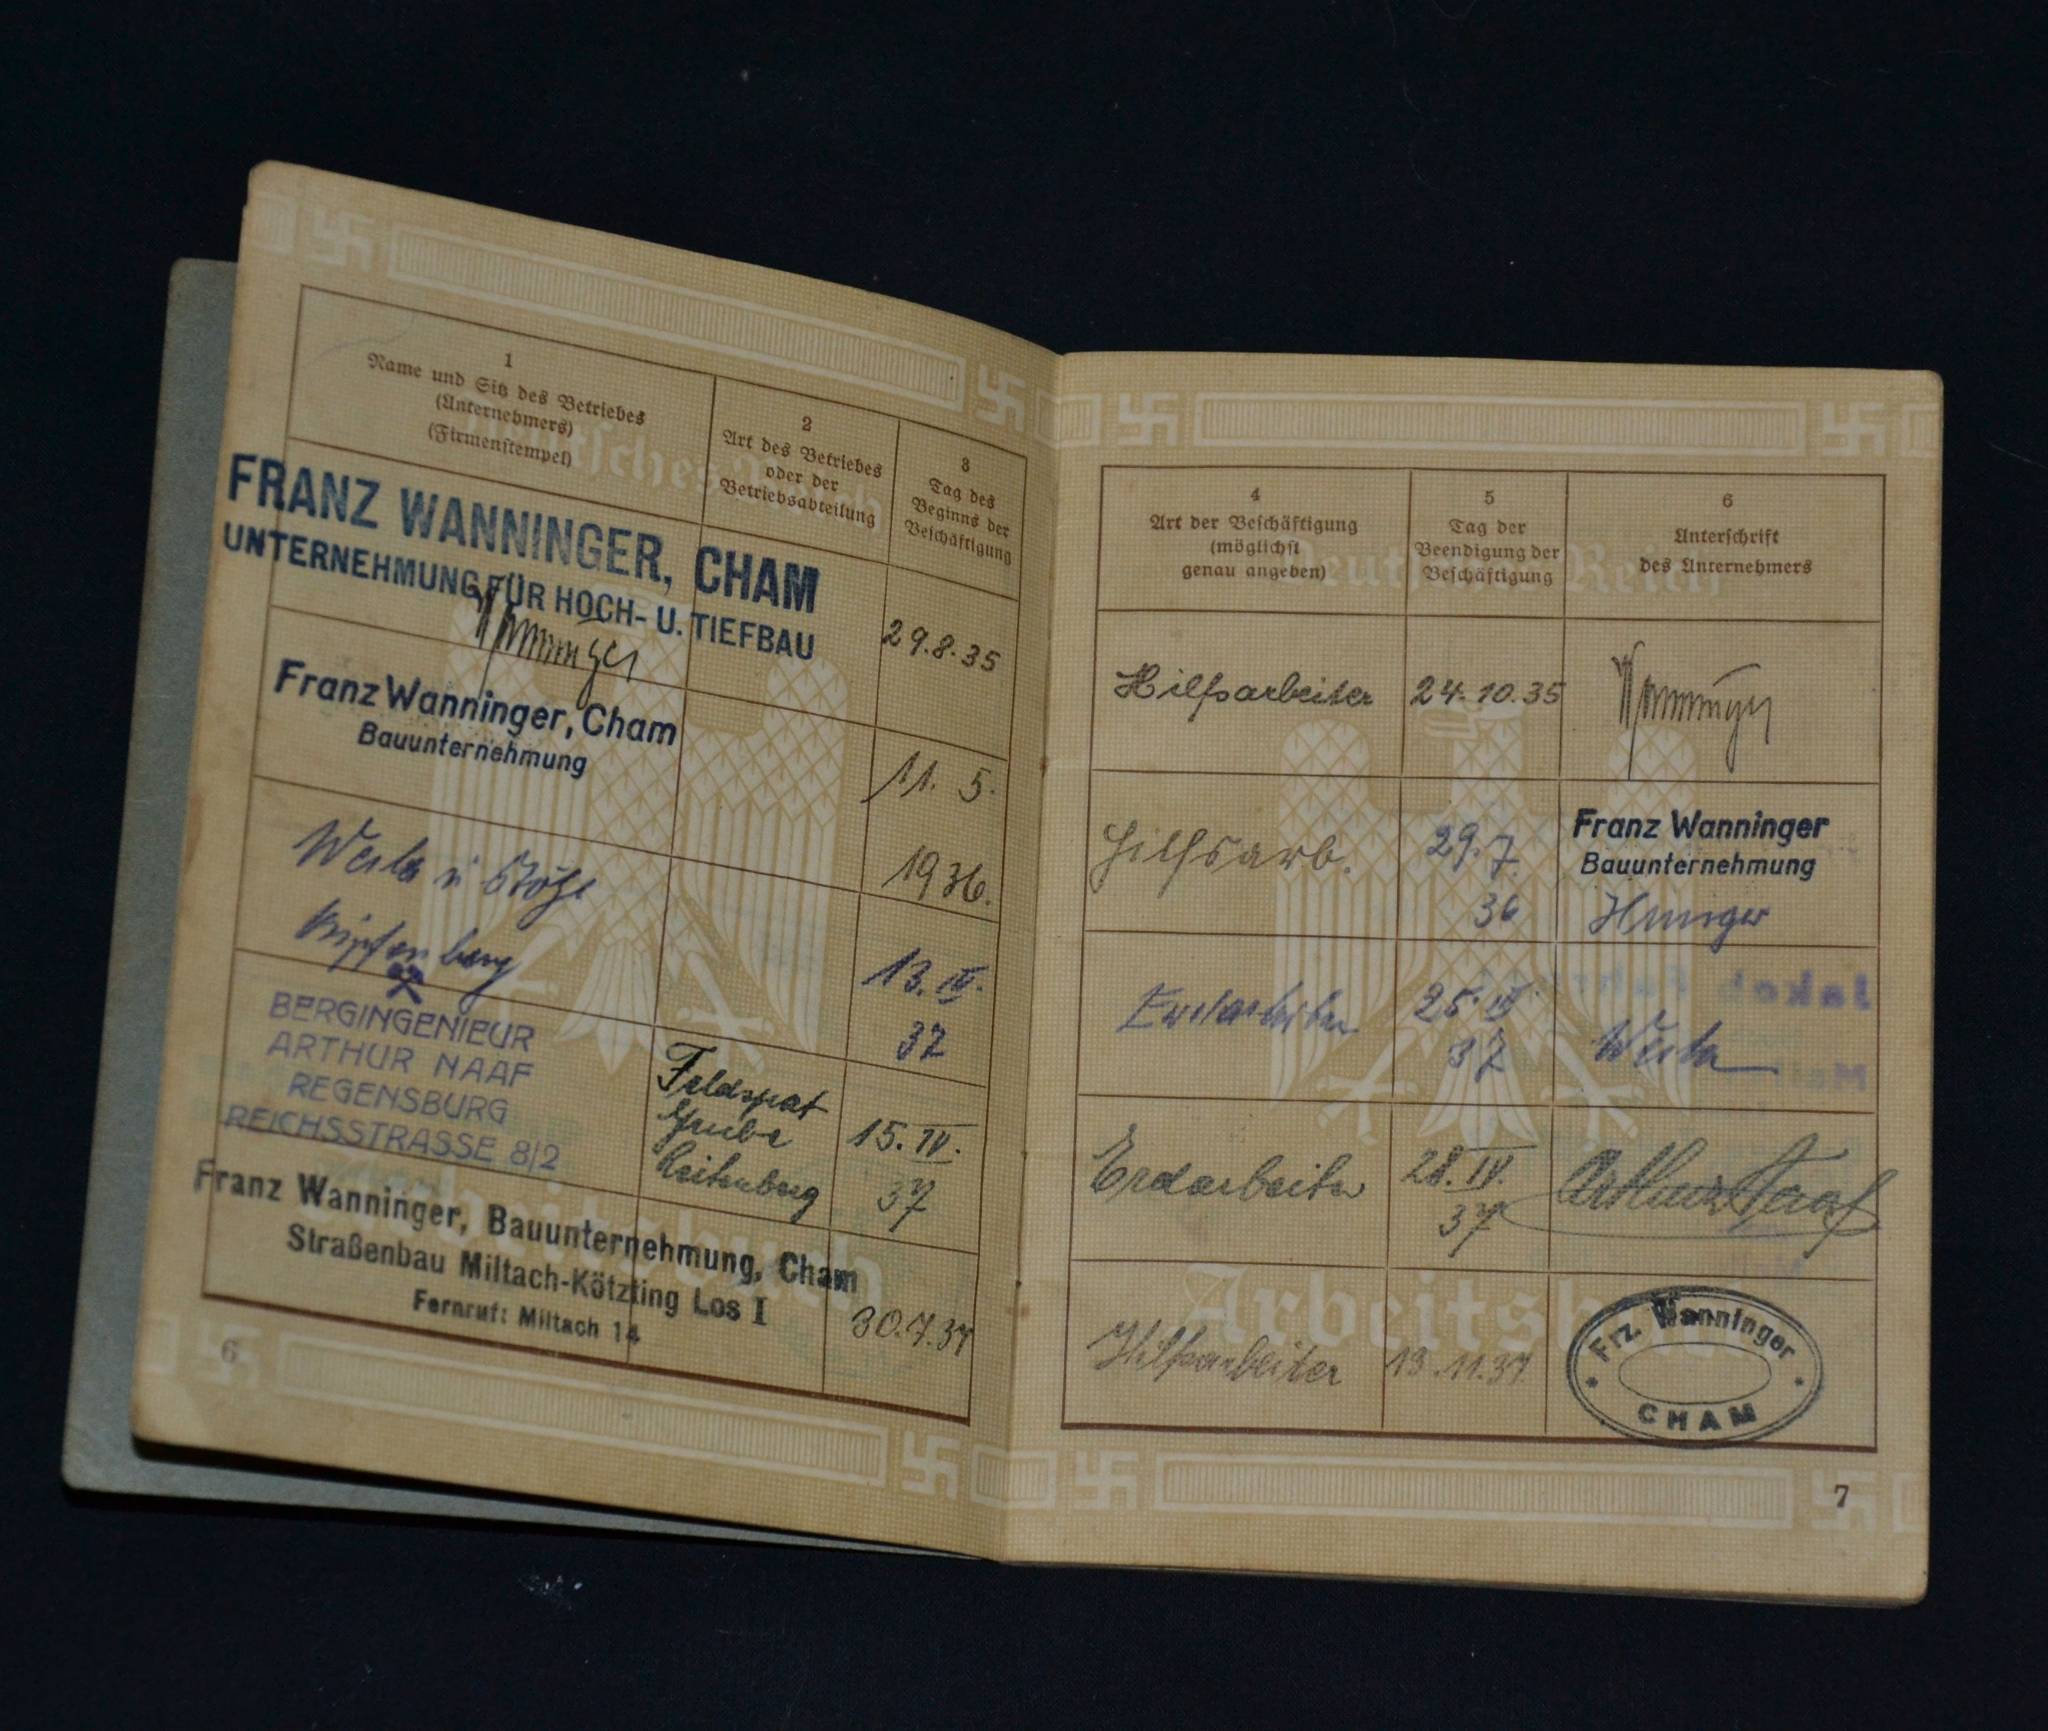 1
Name und Sitz des Betriebes
(Unternehmers)
(Firmenstempel)
2
Art des Betriebes
oder der
Betriebsabteilung
3
Tag des
Beginns der
Beschäftigung
FRANZ WANNINGER, CHAM
UNTERNEHMUNG FÜR HOCH- U. TIEFBAU
Wanninger
29.8.35
Franz Wanninger, Cham
Bauunternehmung
11. 5.
1936.
13. IV.
37
BERGINGENIEUR
ARTHUR NAAF
REGENSBURG
REICHSSTRASSE 8/2
Feldspat
Grube
15. IV.
37
Franz Wanninger, Bauunternehmung, Cham
Straßenbau Miltach-Kötzting Los I
Fernruf: Miltach 14
30.7.37
6
Deutsches Reich
4
Art der Beschäftigung
(möglichst
genau angeben)
5
Tag der
Beendigung der
Beschäftigung
6
Unterschrift
des Unternehmers
Hilfsarbeiter
24.10.35
Wanninger
Hilfsarb.
29.7.
36
Franz Wanninger
Bauunternehmung
Erdarbeiter
37
Erdarbeiter
28. IV.
37
Arthur Naaf
Hilfsarbeiter
13.11.37.
Frz. Wanninger
CHAM
7